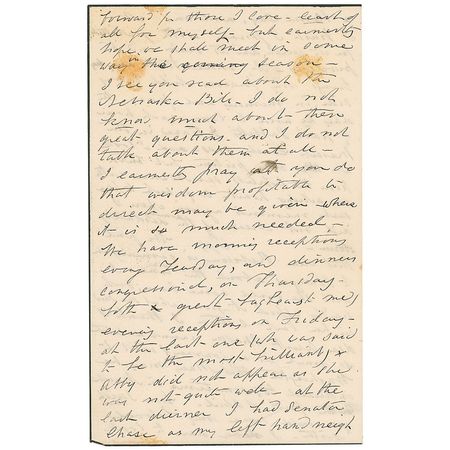 forward for those I love - least of
all for myself - but earnestly
hope we shall meet in some
way in the coming season -
I see you read about the
Nebraska Bill - I do not
know much about - these
great questions - and I do not
talk about them at all -
I earnestly pray as you do
that wisdom profitable to
direct may be given - where
it is so much needed -
We have morning receptions
every Tuesday, and dinners
congressional, on Thursday -
both great
evening receptions on Friday -
at the last one was said
to be the most brilliant, &
Abby did not appear as she
was not quite well - at the
last dinner I had Senator
Chase as my left hand neigh